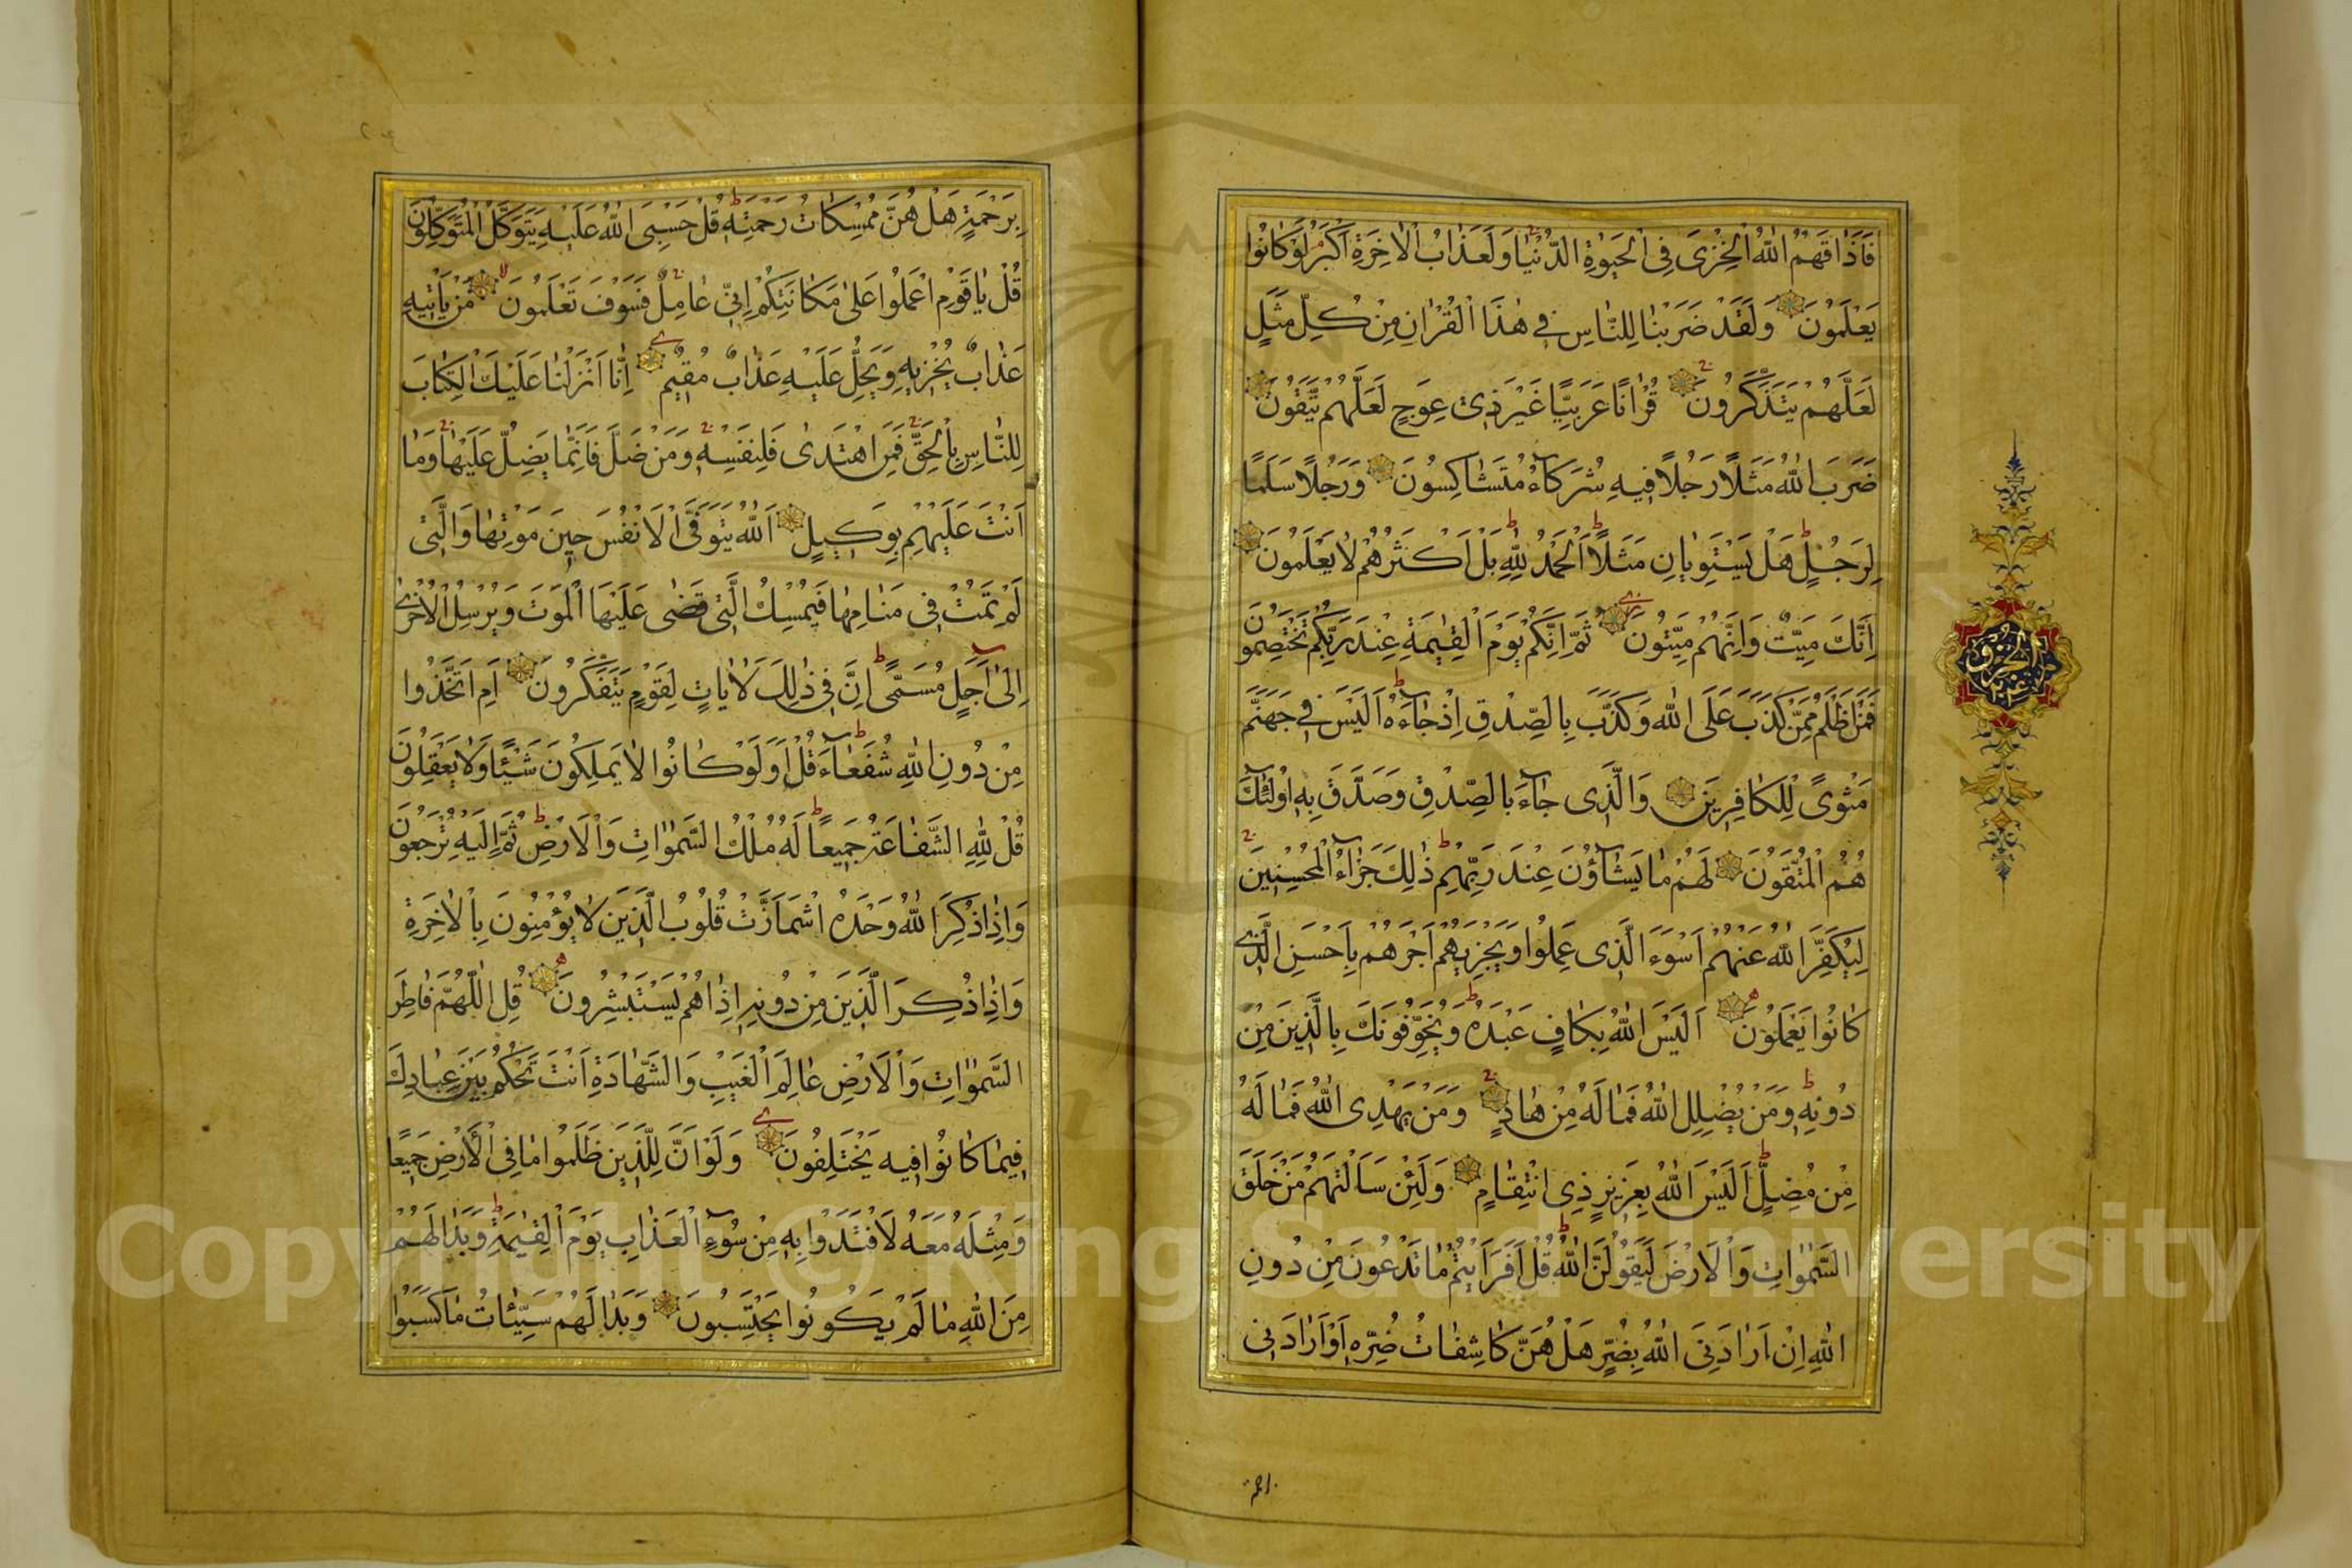 فَاَذَاقَهُمُ اللّٰهُ الْخِزْىَ فِى الْحَيٰوةِ الدُّنْيَا وَلَعَذَابُ الْاٰخِرَةِ اَكْبَرُ لَوْ كَانُوا
يَعْلَمُونَ وَلَقَدْ ضَرَبْنَا لِلنَّاسِ فِى هٰذَا الْقُرْاٰنِ مِنْ كُلِّ مَثَلٍ
لَعَلَّهُمْ يَتَذَكَّرُونَ قُرْاٰنًا عَرَبِيًّا غَيْرَ ذِى عِوَجٍ لَعَلَّهُمْ يَتَّقُونَ
ضَرَبَ اللّٰهُ مَثَلًا رَجُلًا فِيهِ شُرَكَاءُ مُتَشَاكِسُونَ وَرَجُلًا سَلَمًا
لِرَجُلٍ هَلْ يَسْتَوِيَانِ مَثَلًا اَلْحَمْدُ لِلّٰهِ بَلْ اَكْثَرُهُمْ لَا يَعْلَمُونَ
اِنَّكَ مَيِّتٌ وَاِنَّهُمْ مَيِّتُونَ ثُمَّ اِنَّكُمْ يَوْمَ الْقِيٰمَةِ عِنْدَ رَبِّكُمْ تَخْتَصِمُونَ
فَمَنْ اَظْلَمُ مِمَّنْ كَذَبَ عَلَى اللّٰهِ وَكَذَّبَ بِالصِّدْقِ اِذْ جَاءَهُ اَلَيْسَ فِى جَهَنَّمَ
مَثْوًى لِلْكَافِرِينَ وَالَّذِى جَاءَ بِالصِّدْقِ وَصَدَّقَ بِهِ اُولٰئِكَ
هُمُ الْمُتَّقُونَ لَهُمْ مَا يَشَاؤُنَ عِنْدَ رَبِّهِمْ ذٰلِكَ جَزَاءُ الْمُحْسِنِينَ
لِيُكَفِّرَ اللّٰهُ عَنْهُمْ اَسْوَءَ الَّذِى عَمِلُوا وَيَجْزِيَهُمْ اَجْرَهُمْ بِاَحْسَنِ الَّذِى
كَانُوا يَعْمَلُونَ اَلَيْسَ اللّٰهُ بِكَافٍ عَبْدَهُ وَيُخَوِّفُونَكَ بِالَّذِينَ مِنْ
دُونِهِ وَمَنْ يُضْلِلِ اللّٰهُ فَمَا لَهُ مِنْ هَادٍ وَمَنْ يَهْدِى اللّٰهُ فَمَا لَهُ
مِنْ مُضِلٍّ اَلَيْسَ اللّٰهُ بِعَزِيزٍ ذِى انْتِقَامٍ وَلَئِنْ سَاَلْتَهُمْ مَنْ خَلَقَ
السَّمٰوَاتِ وَالْاَرْضَ لَيَقُولُنَّ اللّٰهُ قُلْ اَفَرَاَيْتُمْ مَا تَدْعُونَ مِنْ دُونِ
اللّٰهِ اِنْ اَرَادَنِىَ اللّٰهُ بِضُرٍّ هَلْ هُنَّ كَاشِفَاتُ ضُرِّهِ اَوْ اَرَادَنِى
بِرَحْمَةٍ هَلْ هُنَّ مُمْسِكَاتُ رَحْمَتِهِ قُلْ حَسْبِىَ اللّٰهُ عَلَيْهِ يَتَوَكَّلُ الْمُتَوَكِّلُونَ
قُلْ يَا قَوْمِ اعْمَلُوا عَلٰى مَكَانَتِكُمْ اِنِّى عَامِلٌ فَسَوْفَ تَعْلَمُونَ مَنْ يَاْتِيهِ
عَذَابٌ يُخْزِيهِ وَيَحِلُّ عَلَيْهِ عَذَابٌ مُقِيمٌ اِنَّا اَنْزَلْنَا عَلَيْكَ الْكِتَابَ
لِلنَّاسِ بِالْحَقِّ فَمَنِ اهْتَدٰى فَلِنَفْسِهِ وَمَنْ ضَلَّ فَاِنَّمَا يَضِلُّ عَلَيْهَا وَمَا
اَنْتَ عَلَيْهِمْ بِوَكِيلٍ اَللّٰهُ يَتَوَفَّى الْاَنْفُسَ حِينَ مَوْتِهَا وَالَّتِى
لَمْ تَمُتْ فِى مَنَامِهَا فَيُمْسِكُ الَّتِى قَضٰى عَلَيْهَا الْمَوْتَ وَيُرْسِلُ الْاُخْرٰى
اِلٰى اَجَلٍ مُسَمًّى اِنَّ فِى ذٰلِكَ لَاٰيَاتٍ لِقَوْمٍ يَتَفَكَّرُونَ اَمِ اتَّخَذُوا
مِنْ دُونِ اللّٰهِ شُفَعَاءَ قُلْ اَوَلَوْ كَانُوا لَا يَمْلِكُونَ شَيْئًا وَلَا يَعْقِلُونَ
قُلْ لِلّٰهِ الشَّفَاعَةُ جَمِيعًا لَهُ مُلْكُ السَّمٰوَاتِ وَالْاَرْضِ ثُمَّ اِلَيْهِ تُرْجَعُونَ
وَاِذَا ذُكِرَ اللّٰهُ وَحْدَهُ اشْمَاَزَّتْ قُلُوبُ الَّذِينَ لَا يُؤْمِنُونَ بِالْاٰخِرَةِ
وَاِذَا ذُكِرَ الَّذِينَ مِنْ دُونِهِ اِذَا هُمْ يَسْتَبْشِرُونَ قُلِ اللّٰهُمَّ فَاطِرَ
السَّمٰوَاتِ وَالْاَرْضِ عَالِمَ الْغَيْبِ وَالشَّهَادَةِ اَنْتَ تَحْكُمُ بَيْنَ عِبَادِكَ
فِيمَا كَانُوا فِيهِ يَخْتَلِفُونَ وَلَوْ اَنَّ لِلَّذِينَ ظَلَمُوا مَا فِى الْاَرْضِ جَمِيعًا
وَمِثْلَهُ مَعَهُ لَافْتَدَوْا بِهِ مِنْ سُوءِ الْعَذَابِ يَوْمَ الْقِيٰمَةِ وَبَدَا لَهُمْ
مِنَ اللّٰهِ مَا لَمْ يَكُونُوا يَحْتَسِبُونَ وَبَدَا لَهُمْ سَيِّئَاتُ مَا كَسَبُوا
Copyright © King Saud University